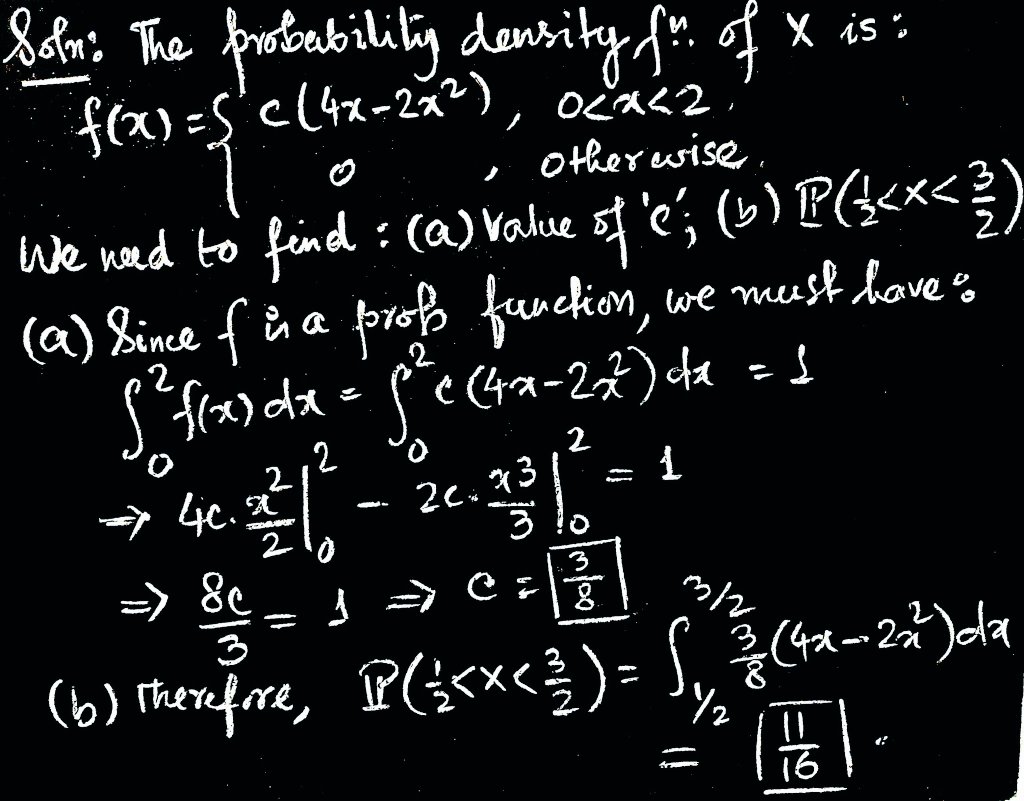 Soln: The probability density fn. of X is:
f(x) = { c(4x-2x²), 0<x<2,
0, otherwise.
We need to find: (a) Value of 'c'; (b) ℙ(1/2<X<3/2)
(a) Since f is a prob function, we must have:
∫₀² f(x) dx = ∫₀² c(4x-2x²) dx = 1
⇒ 4c. x²/2 |₀² - 2c. x³/3 |₀² = 1
⇒ 8c/3 = 1 ⇒ c = 3/8
(b) Therefore, ℙ(1/2<X<3/2) = ∫_{1/2}^{3/2} 3/8 (4x-2x²) dx
= 11/16.